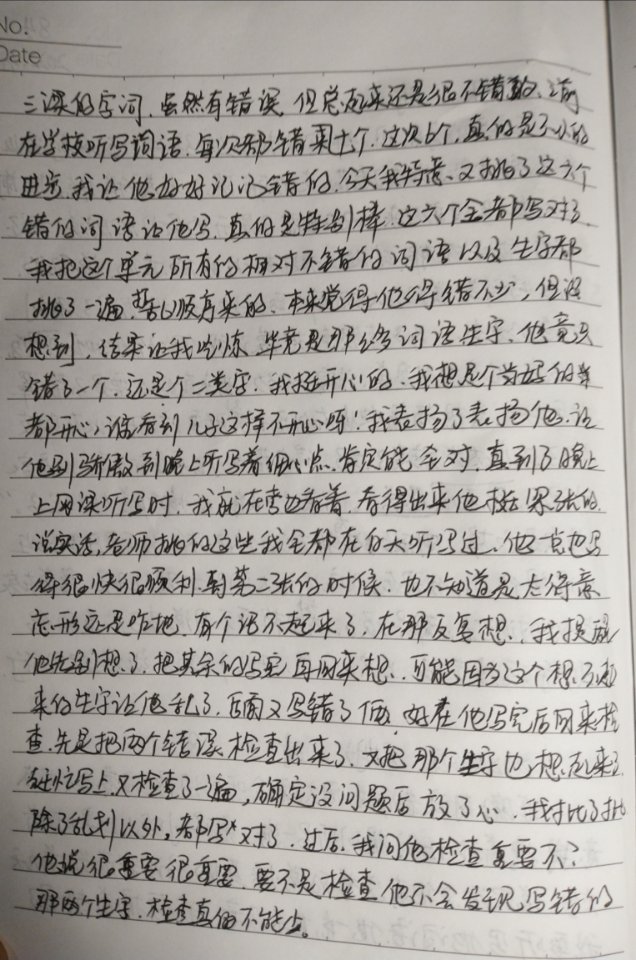 No.
Date
三课的字词，虽然有错误，但总起来还是很不错的，以前
在学校听写词语，每次都错来十个，这次6个，真的是不小的
进步，我让他好好记记错的，今天我特意又挑了这六个
错的词语让他写，真的是特别棒，这六个全都写对了，
我把这个单元所有的相对不错的词语以及生字都
挑了一遍，按顺序来的，本来觉得他得错不少，但没
想到，结果让我吃惊，毕竟是那么多词语生字，他竟只
错了一个，还是个二类字，我挺开心的，我想是个当妈的
都开心，谁看到儿子这样不开心呀！我表扬了表扬他，让
他别骄傲，到晚上听写着细心点，肯定能全对，直到了晚上
上网课听写时，我就在旁边看着，看得出来他挺紧张的，
说实话，老师挑的这些我全都在白天听写过，他也写
得很快很顺利，到第二张的时候，也不知道是太得意
忘形还是咋地，有个记不起来了，在那反复想，我提醒
他先别想了，把其余的写完再回来想，可能因为这个想不起
来的生字让他乱了，后面又写错了俩，好在他写完后回来检
查，先是把两个错误检查出来了，又把那个生字也想起来了
赶忙写上，又检查了一遍，确定没问题后放了心，我对比了
除了乱划以外，都写对了，过后，我问他检查重要不？
他说很重要很重要，要不是检查他不会发现写错的
那两个生字，检查真的不能少。